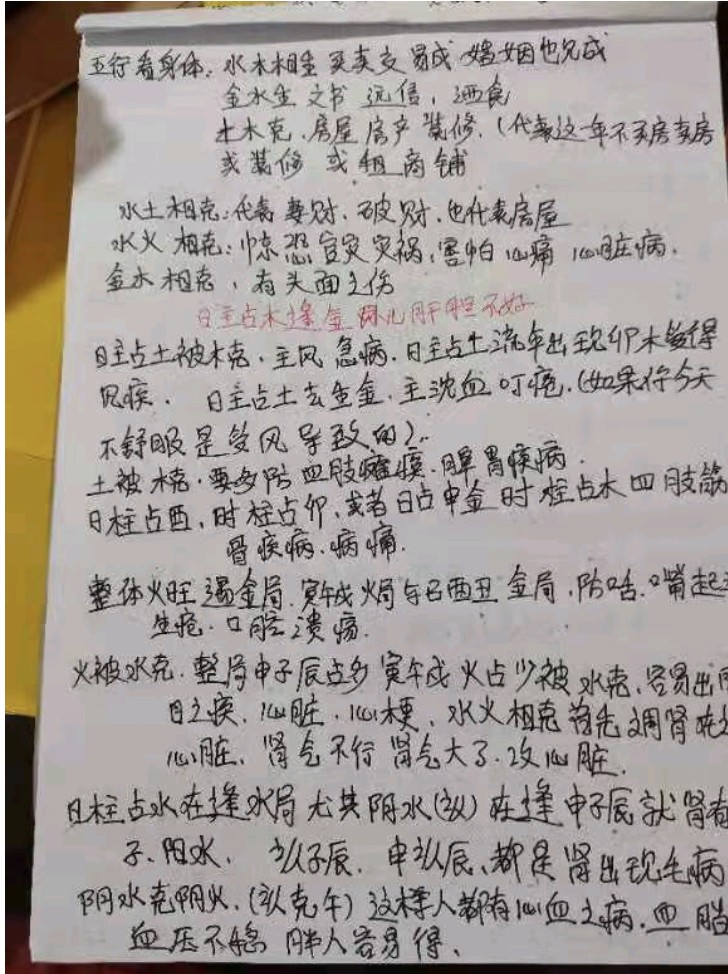 五行看身体:水木相生 买卖交易成 婚姻也完成
金水生 文书 远信,酒食
土木克.房屋房产装修.(代表这一年不买房卖房
或装修 或租商铺
水土相克:代表妻财.破财.也代表房屋
水火相克:惊恐官灾灾祸,害怕 心痛 心脏病.
金木相克,有头面之伤
日主占木逢金 肝胆不好
日主占土被木克.主风急病.日主占土流年出现卯木多得
风疾. 日主占土去生金.主沈血疔疮.(如果你今天
不舒服是受风导致的).
土被木克.要多防四肢瘫痪.脾胃疾病.
日柱占酉,时柱占卯,或者日占申金时柱占木四肢筋
骨疾病.病痛.
整体火旺遇金局.寅午戌火局与巳酉丑金局.防咕.嘴起
生疮.口腔溃疡.
火被水克.整局申子辰占多寅午戌火占少被水克.容易出
目之疾.心脏.心梗.水火相克首先调肾
心脏.肾气不行肾气大了.攻心脏.
日柱占水在逢水局尤其阴水(亥)在逢申子辰就肾有
子.阳水. 亥子辰.申亥辰.都是肾出现毛病
阴水克阴火.(亥克午)这样人都有心血之病.血脂
血压不稳 胖人容易得.